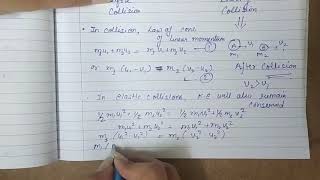 Collision
Collision
• In collision, Law of cons of linear momentum
m₁u₁ + m₂u₂ = m₁v₁ + m₂v₂ — ①
A → v₁ B → v₂
m₁ m₂
or m₁(u₁-v₁) = m₂(v₂-u₂) — ②
After Collision
v₂ > v₁
• In elastic collisions, K.E will also remain conserved
½ m₁u₁² + ½ m₂u₂² = ½ m₁v₁² + ½ m₂v₂²
m₁u₁² + m₂u₂² = m₁v₁² + m₂v₂²
m₁(u₁² - v₁²) = m₂(v₂² - u₂²)
m₁(